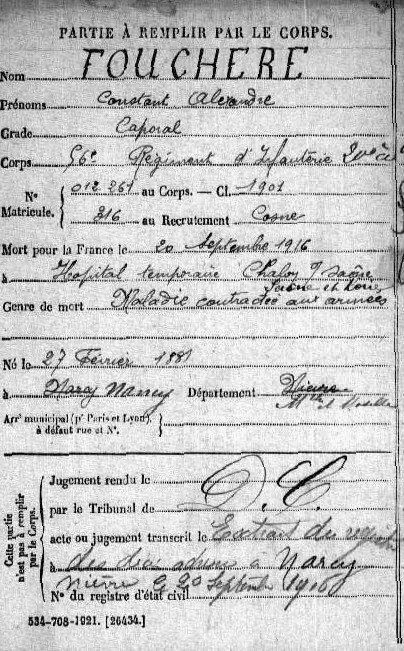 PARTIE À REMPLIR PAR LE CORPS.
Nom FOUCHERE
Prénoms Constant Alexandre
Grade Caporal
Corps 56e Régiment d'Infanterie
Nº Matricule. 012 261 au Corps. — Cl. 1901
316 au Recrutement Cosne
Mort pour la France le 20 Septembre 1916
à Hopital temporaire Chalon s/ Saône
Saône et Loire
Genre de mort Maladie contractée aux armées
Né le 27 Février 1881
à Narcy Nancy Département Nièvre
Mthe et Moselle
Arrt municipal (pr Paris et Lyon),
à défaut rue et Nº.
Cette partie n'est pas à remplir par le Corps.
Jugement rendu le
par le Tribunal de D.C.
acte ou jugement transcrit le Extrait du
à du décès adressé à Narcy
Nièvre le 20 Septembre 1916
Nº du registre d'état civil
534-708-1921. [26434.]